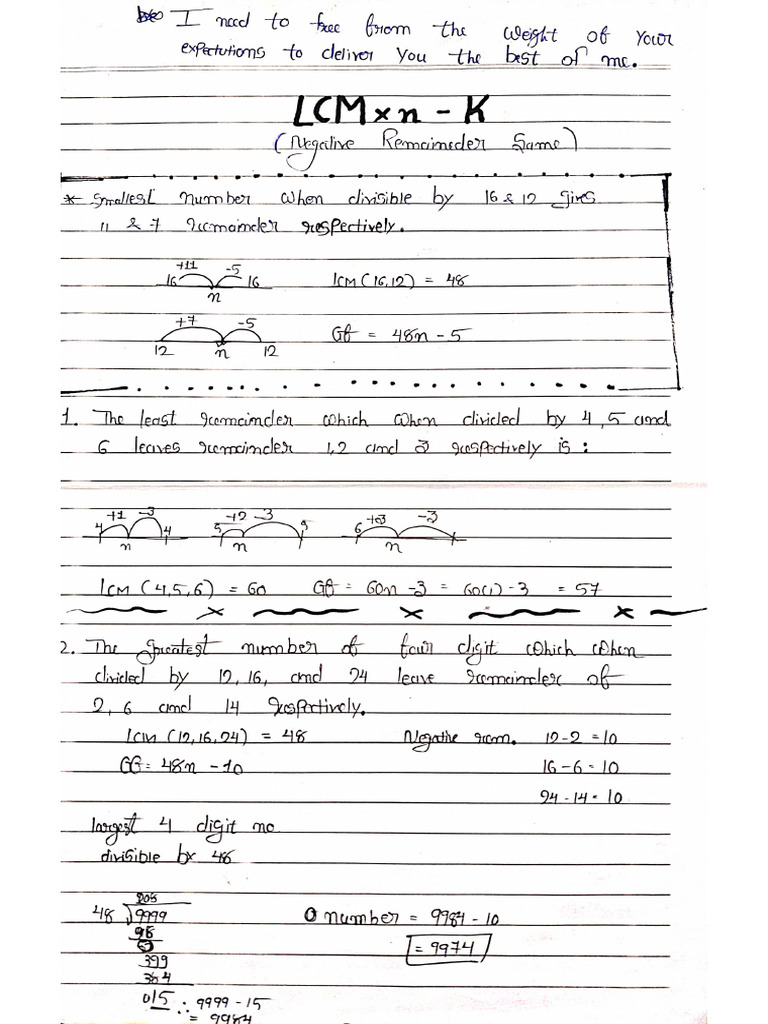 I need to free from the weight of your
expectations to deliver you the best of me.
LCM × n - K
(Negative Remainder Same)
* Smallest number when divisible by 16 & 12 gives
11 & 7 remainder respectively.
+11 -5
16 n 16
LCM(16,12) = 48
+7 -5
12 n 12
GF = 48n - 5
1. The least remainder which when divided by 4, 5 and
6 leaves remainder 1, 2 and 3 respectively is :
+1 -3 +2 -3 +3 -3
4 n 4 5 n 5 6 n
LCM (4,5,6) = 60 GF = 60n - 3 = 60(1) - 3 = 57
2. The greatest number of four digit which when
divided by 12, 16, and 24 leave remainder of
2, 6 and 14 respectively.
LCM (12,16,24) = 48 Negative rem. 12-2 = 10
GG = 48n - 10 16-6 = 10
24-14 = 10
largest 4 digit no
divisible by 48
48 9999
399
384
015 ∴ 9999 - 15
= 9984
number = 9984 - 10
= 9974